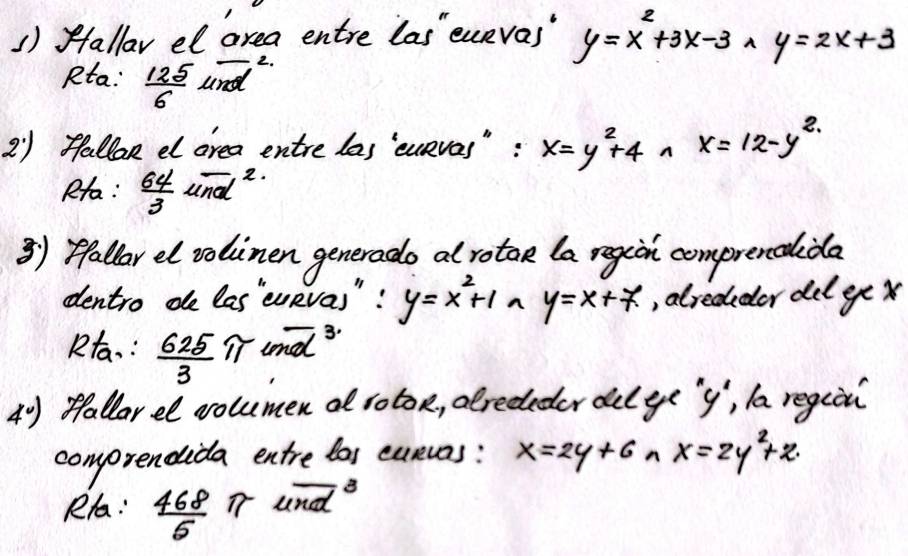 1) Hallar el área entre las "curvas" y=x²+3x-3 ∧ y=2x+3
Rta: 125/6 und².
2°) Hallar el área entre las "curvas" : x=y²+4 ∧ x=12-y².
Rta: 64/3 und².
3°) Hallar el volúmen generado al rotar la región comprendida
dentro de las "curvas" : y=x²+1 ∧ y=x+7, alrededor del eje x
Rta.: 625/3 π und³.
4°) Hallar el volumen al rotar, alrededor del eje "y", la región
comprendida entre las curvas: x=2y+6 ∧ x=2y²+2.
Rta: 468/5 π und³